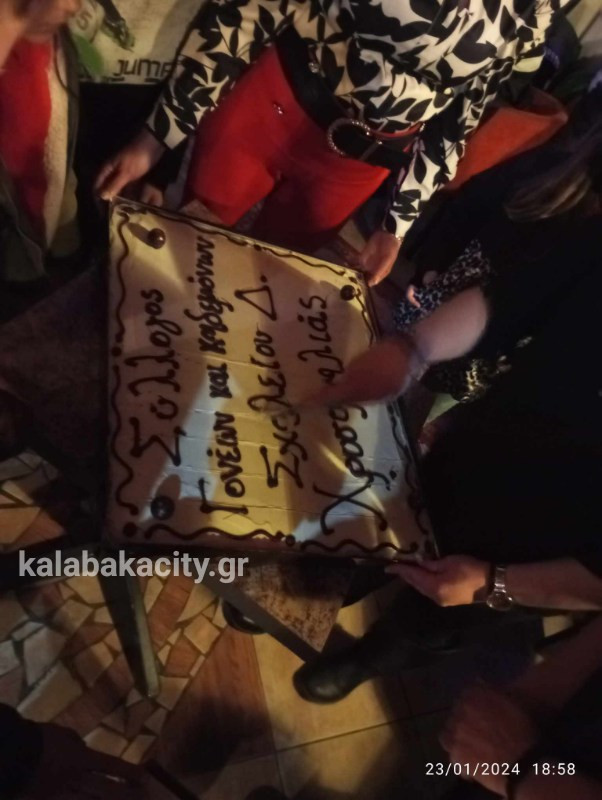 Σύλλογος
Γονέων και κηδεμόνων
Σχολείου Δ.
kalabakacity.gr
23/01/2024 18:58